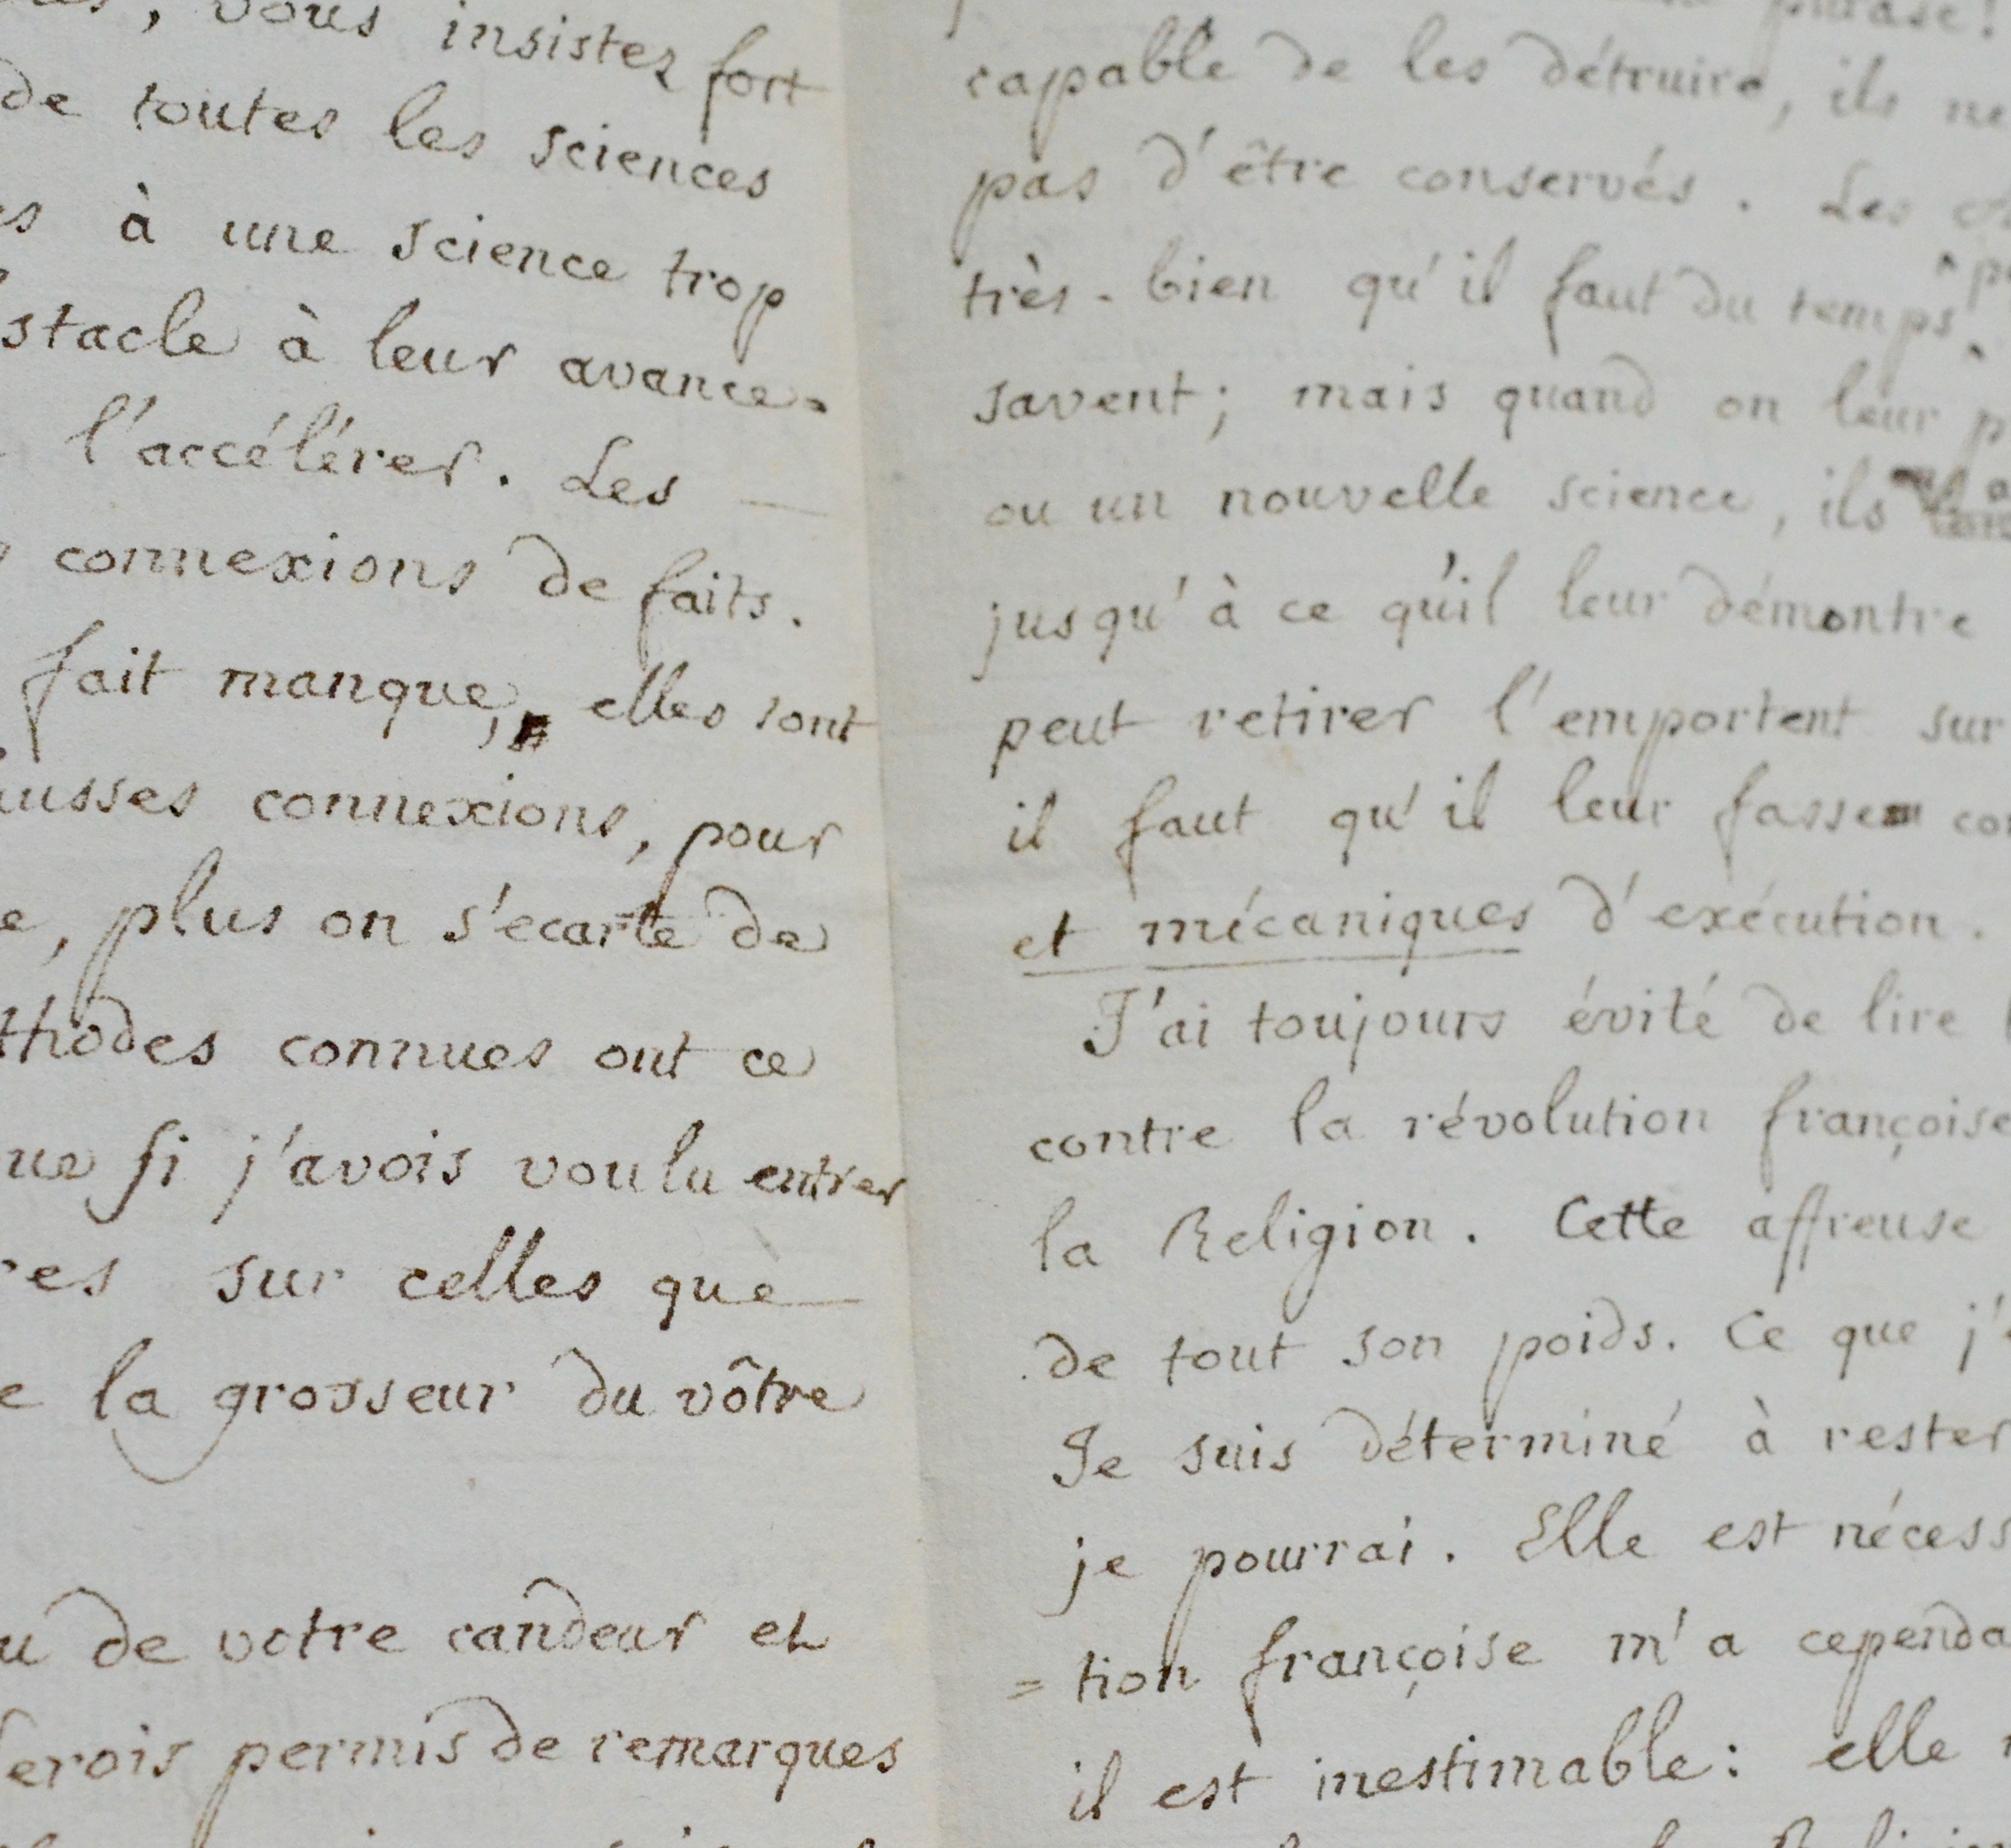 vous insistez fort
de toutes les sciences
à une science trop
stacle à leur avance=
l'accélérer. Les
connexions de faits.
fait manque, elles sont
usses connexions, pour
e, plus on s'ecarte de
thodes connues ont ce
si j'avois voulu entrer
res sur celles que
e la grosseur du vôtre
u de votre candeur et
erois permis de remarques
phrase!
capable de les détruire, ils ne
pas d'être conservés. Les
très-bien qu'il faut du temps
savent; mais quand on leur p
ou un nouvelle science, ils
jusqu'à ce qu'il leur démontre
peut retirer l'emportent sur
il faut qu'il leur fasse co
et mécaniques d'exécution.
J'ai toujours évité de lire
contre la révolution françoise
la Religion. Cette affreuse
de tout son poids. Ce que j'
Je suis déterminé à rester
je pourrai. Elle est nécess
=tion françoise m'a cependa
il est inestimable: elle